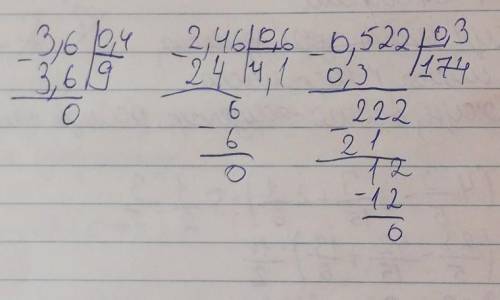 - 3,6 | 0,4
3,6 | 9
0
- 2,46 | 0,6
24 | 4,1
6
- 6
0
- 0,522 | 0,3
0,3 | 174
222
- 21
12
- 12
0